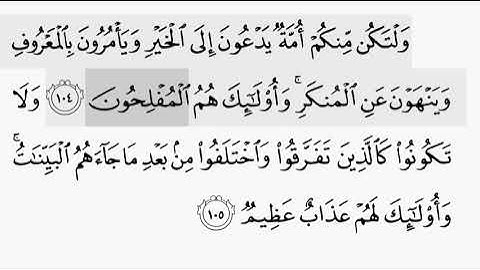 وَلْتَكُن مِّنكُمْ أُمَّةٌ يَدْعُونَ إِلَى ٱلْخَيْرِ وَيَأْمُرُونَ بِٱلْمَعْرُوفِ
وَيَنْهَوْنَ عَنِ ٱلْمُنكَرِ ۚ وَأُو۟لَـٰٓئِكَ هُمُ ٱلْمُفْلِحُونَ ١٠٤ وَلَا
تَكُونُوا۟ كَٱلَّذِينَ تَفَرَّقُوا۟ وَٱخْتَلَفُوا۟ مِنۢ بَعْدِ مَا جَآءَهُمُ ٱلْبَيِّنَـٰتُ ۚ
وَأُو۟لَـٰٓئِكَ لَهُمْ عَذَابٌ عَظِيمٌ ١٠٥